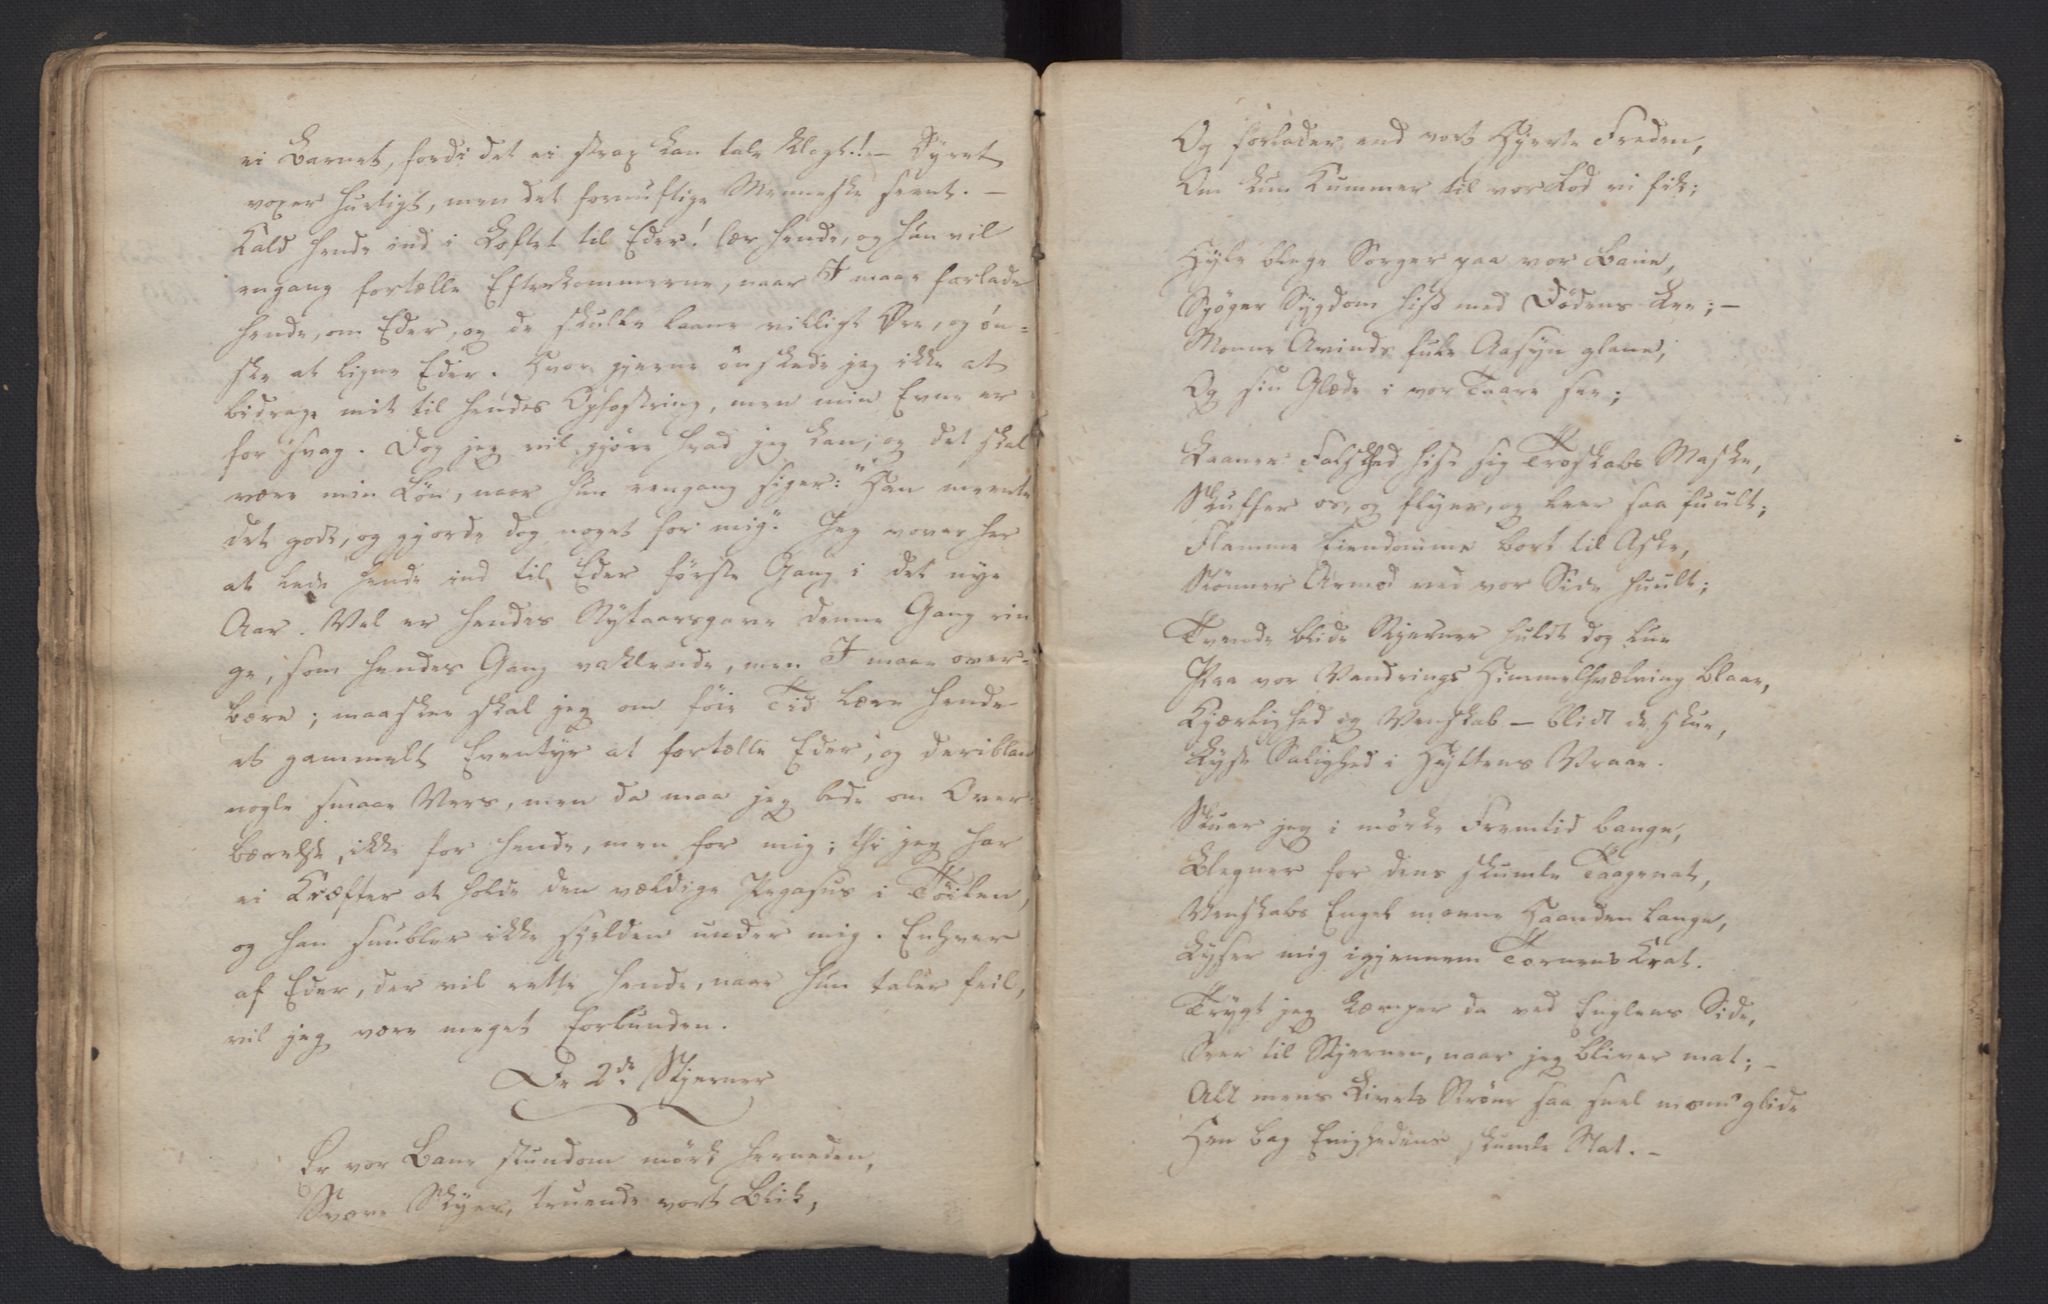 ei Barnet, fordi det ei strax kan tale klogt! – Dyret
voxer hurtigt, men det fornuftige Menneske seent. –
Kald hende ind i Loftet til Eder! lær hende, og hun vil
engang fortælle Efterkommerne, naar I maae forlade
hende, om Eder, og de skulle laane villigt Øre, og øn-
ske at ligne Eder. Hvor gjerne ønskede jeg ikke at
bidrage mit til hendes Opfostring, men min Evne er
for svag. Dog jeg vil gjøre hvad jeg kan, og det skal
være min Løn, naar hun eengang siger: "Han meente
det godt, og gjorde dog noget for mig". Jeg vover her
at lede hende ind til Eder første Gang i det nye
Aar. Vel er hendes Nytaarsgave denne Gang rin
ge, som hendes Gang vaklende, men I maae over-
bære; maaskee skal jeg om føie Tid lære hende
et gammelt Eventyr at fortælle Eder, og deribland
nogle smaae Vers, men da maa jeg bede om Over-
bærelse, ikke for hende, men for mig; thi jeg har
ei Kræfter at holde den vældige Pegasus i Tøilen,
og han snubler ikke sjelden under mig. Enhver
af Eder, der vil rette hende, naar hun taler feil,
vil jeg være meget forbunden.
De 2de Stjerner
Er vor Bane stundom mørk herneden,
Svære Skyer, truende vort Blik,
Og forlader end vort Hjerte Freden,
Om kun Kummer til vor Lod vi fik;
Hyle blege Sorger paa vor Bane,
Spøger Sygdom hist med Dødens Lee; –
Monne Avinds fule Aasyn glane,
Og sin Glæde i vor Taare see;
Laaner Falskhed hist sig Troskabs Maske,
Skuffer os, og flyer, og leer saa fuult;
Flamme Eiendomme bort til Aske,
Stønner Armod ved vor Side huult;
Tvende blide Stjerner huldt dog lue
Paa vor Vandrings Himmelhvælving blaae,
Kjærlighed og Venskab – blidt de skue,
Lyse Salighed i Hyttens Vraae.
Skuer jeg i mørke Fremtid bange,
Blegner for dens skumle Taagenat,
Venskabs Engel monne Haanden lange,
Lyser mig igjennem Tornens Krat.
Trygt jeg kæmper da ved Englens Side,
Seer til Stjernen, naar jeg bliver mat; –
Alt mens Livets Strøm saa snel monn' glide
Hen bag Evighedens skumle Nat. –